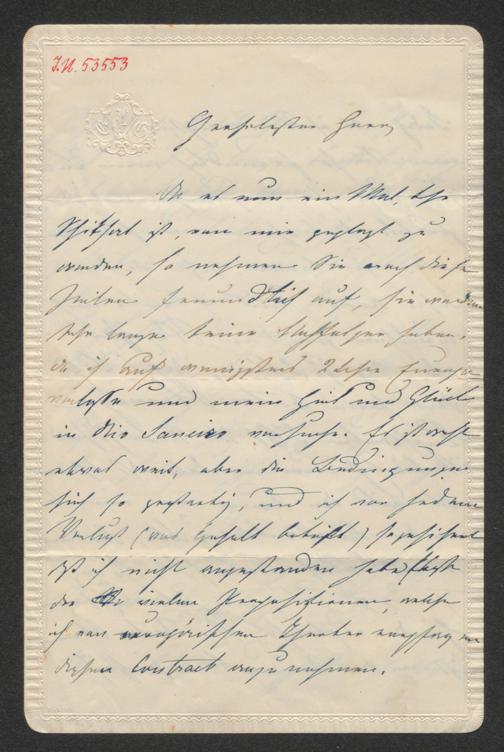 I.N. 53553
Geehrtester Herr,
Da es nun ein Mal, Ihr
Schicksal ist, von mir geplagt zu
werden, so nehmen Sie auch diese
Zeilen freundlich auf, sie werden
sehr lange keine Nachfolger haben,
da ich auf wenigstens 2 Jahre Europa
verlasse und mein Heil und Glück
in Rio Janeiro versuche. Es ist recht
etwas weit, aber die Bedingungen
sich so und ich vor jedem
Verlust (was Gehalt betrifft) so gesichert
daß ich nicht angestanden habe
der vielen Propositionen, welche
ich von europäischen Theater empfing
diesen Contract anzunehmen.